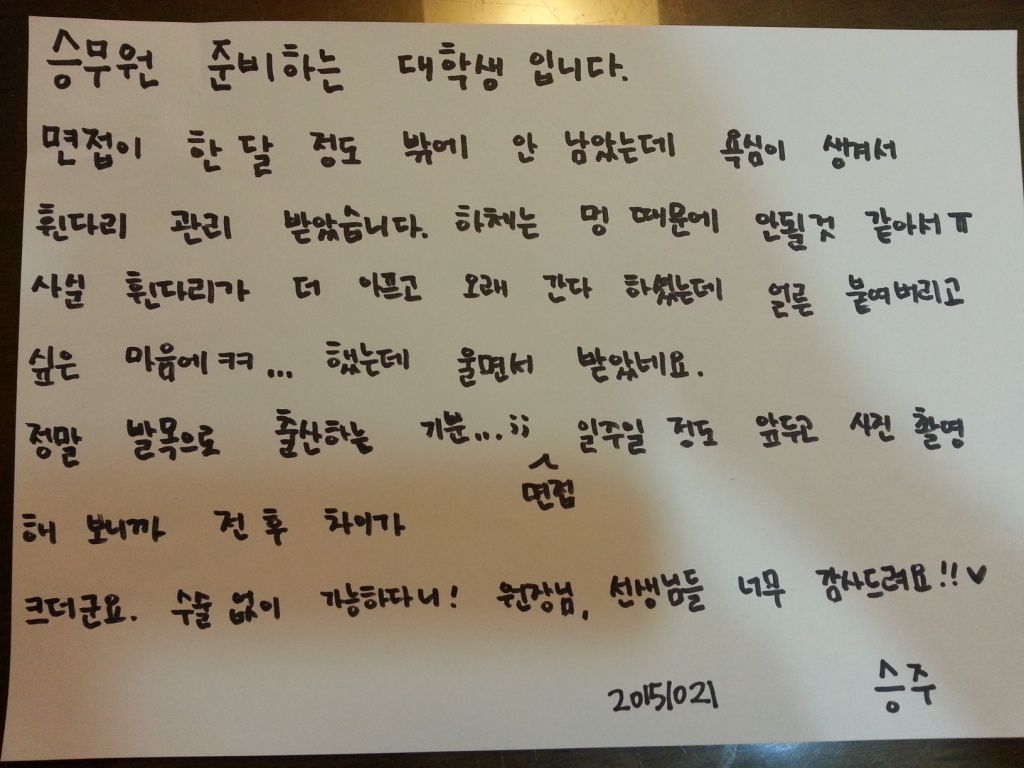 승무원 준비하는 대학생 입니다.
면접이 한 달 정도 밖에 안 남았는데 욕심이 생겨서
휜다리 관리 받았습니다. 하체는 멍 때문에 안될것 같아서ㅠ
사실 휜다리가 더 아프고 오래 간다 하셨는데 얼른 붙여버리고
싶은 마음에ㅋㅋ... 했는데 울면서 받았네요.
정말 발목으로 출산하는 기분...;; 일주일 정도 앞두고 사진 촬영
면접
해 보니까 전 후 차이가
크더군요. 수술 없이 가능하다니! 원장님, 선생님들 너무 감사드려요!!♥
20151021 승주